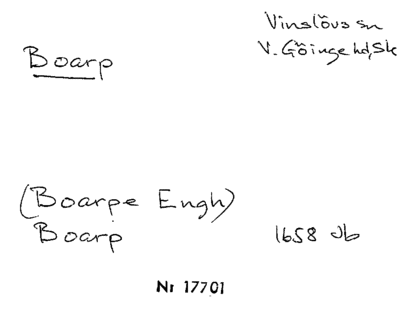 Boarp
Vinslövs sn
V. Göinge hd, Sk
(Boarpe Engh)
Boarp 1658 Jb
Nr 17701